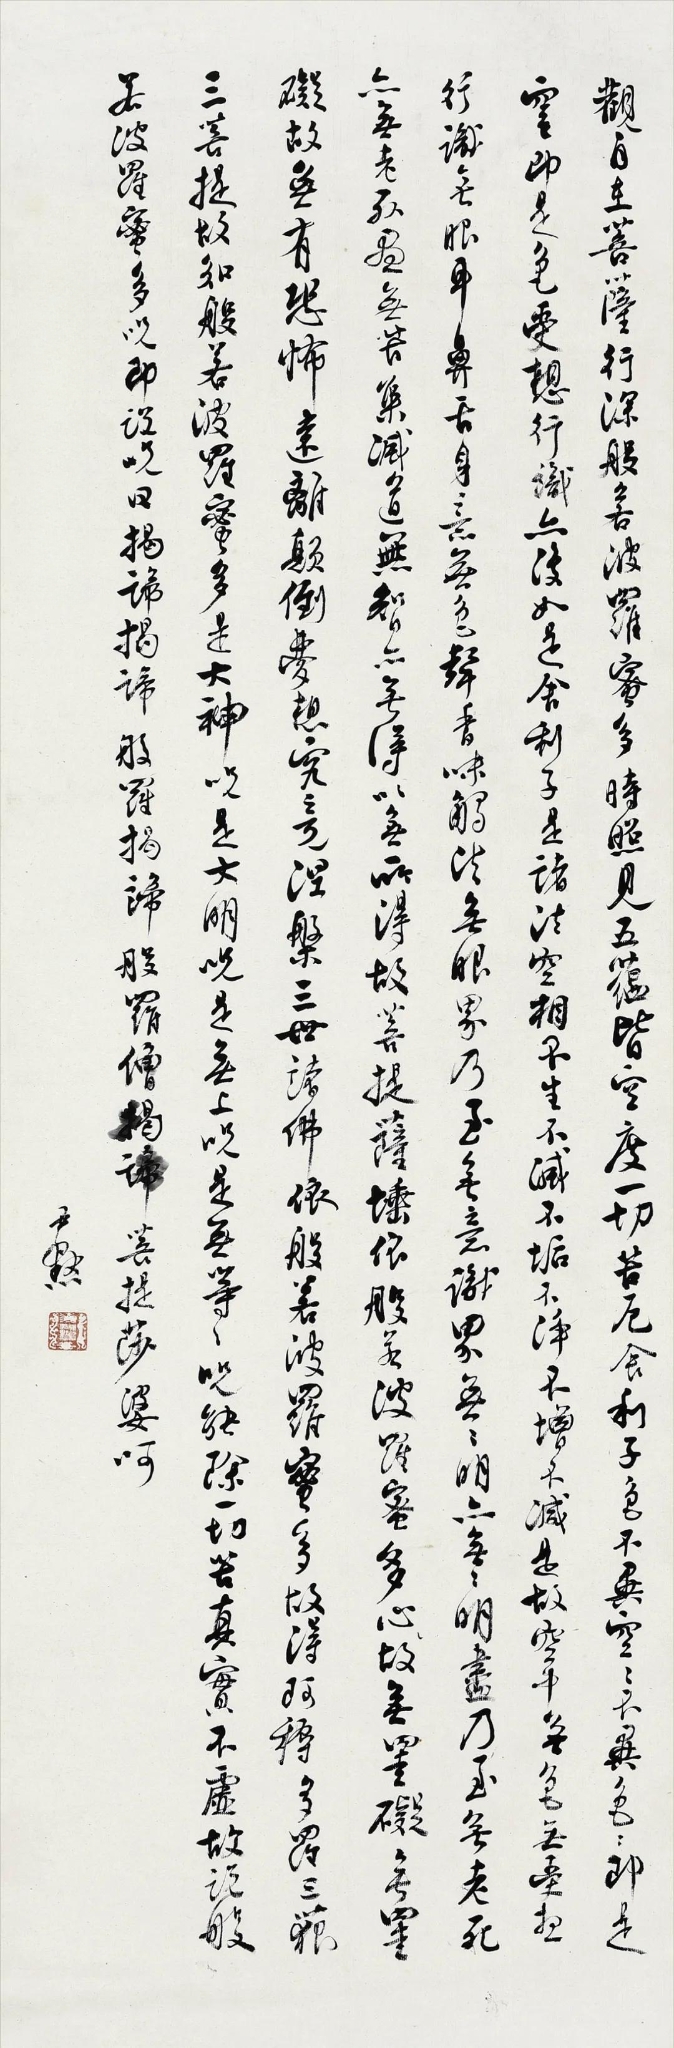 觀自在菩薩行深般若波羅蜜多時照見五蘊皆空度一切苦厄舍利子色不異空〻不異色〻即是
空〻即是色受想行識亦復如是舍利子是諸法空相不生不滅不垢不淨不增不減是故空中無色無受想
行識無眼耳鼻舌身意無色聲香味觸法無眼界乃至無意識界無〻明亦無〻明盡乃至無老死
亦無老死盡無苦集滅道無智亦無得以無所得故菩提薩埵依般若波羅蜜多心故無罣礙無罣
礙故無有恐怖遠離顛倒夢想究竟涅槃三世諸佛依般若波羅蜜多故得阿耨多羅三藐
三菩提故知般若波羅蜜多是大神咒是大明咒是無上咒是無等〻咒能除一切苦真實不虛故說般
若波羅蜜多咒即說咒曰揭諦揭諦般羅揭諦般羅僧揭諦菩提莎婆呵
尹默